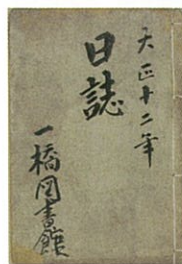 大正十二年
日誌
一橋図書館